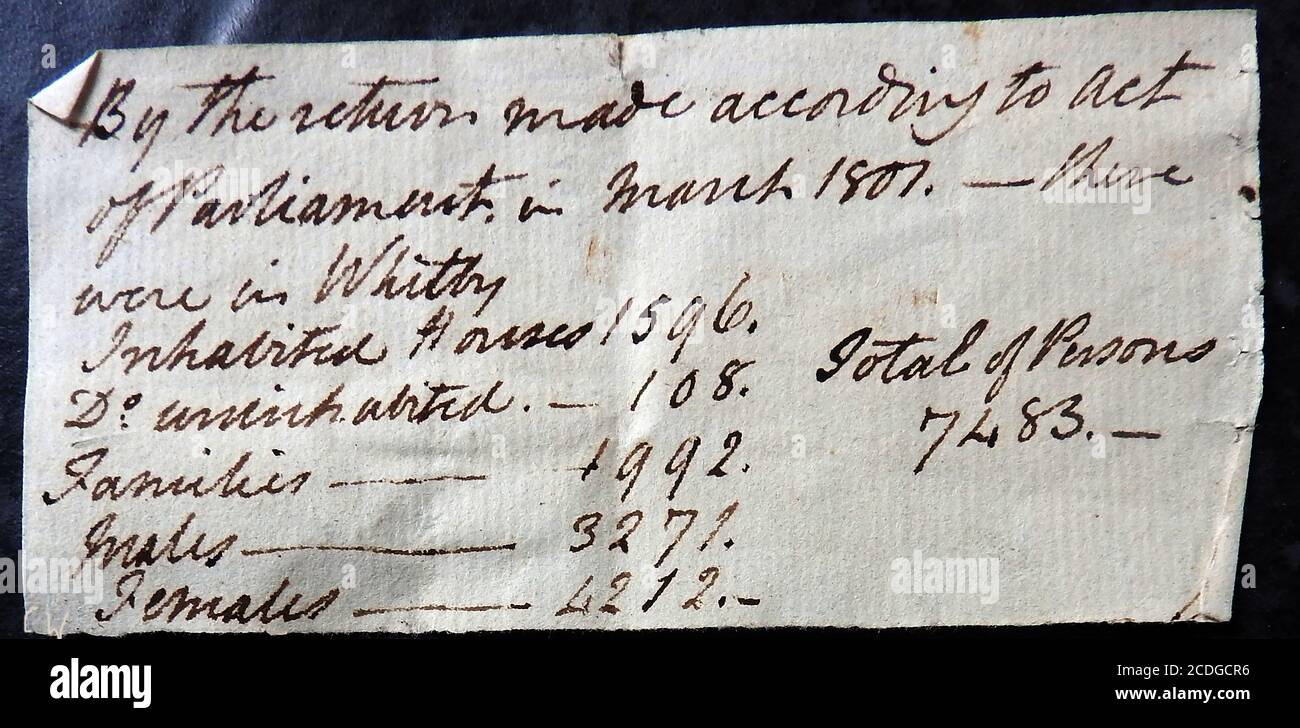 By the return made according to Act
of Parliament. in March 1801. — there
were in Whitby
Inhabited Houses 1596.
Do. uninhabited. — 108.
Families — 1992.
Males — 3271.
Females — 4212.—
Total of Persons
7483.—
a
alamy
alamy
Image ID: 2CDGCR6
www.alamy.com